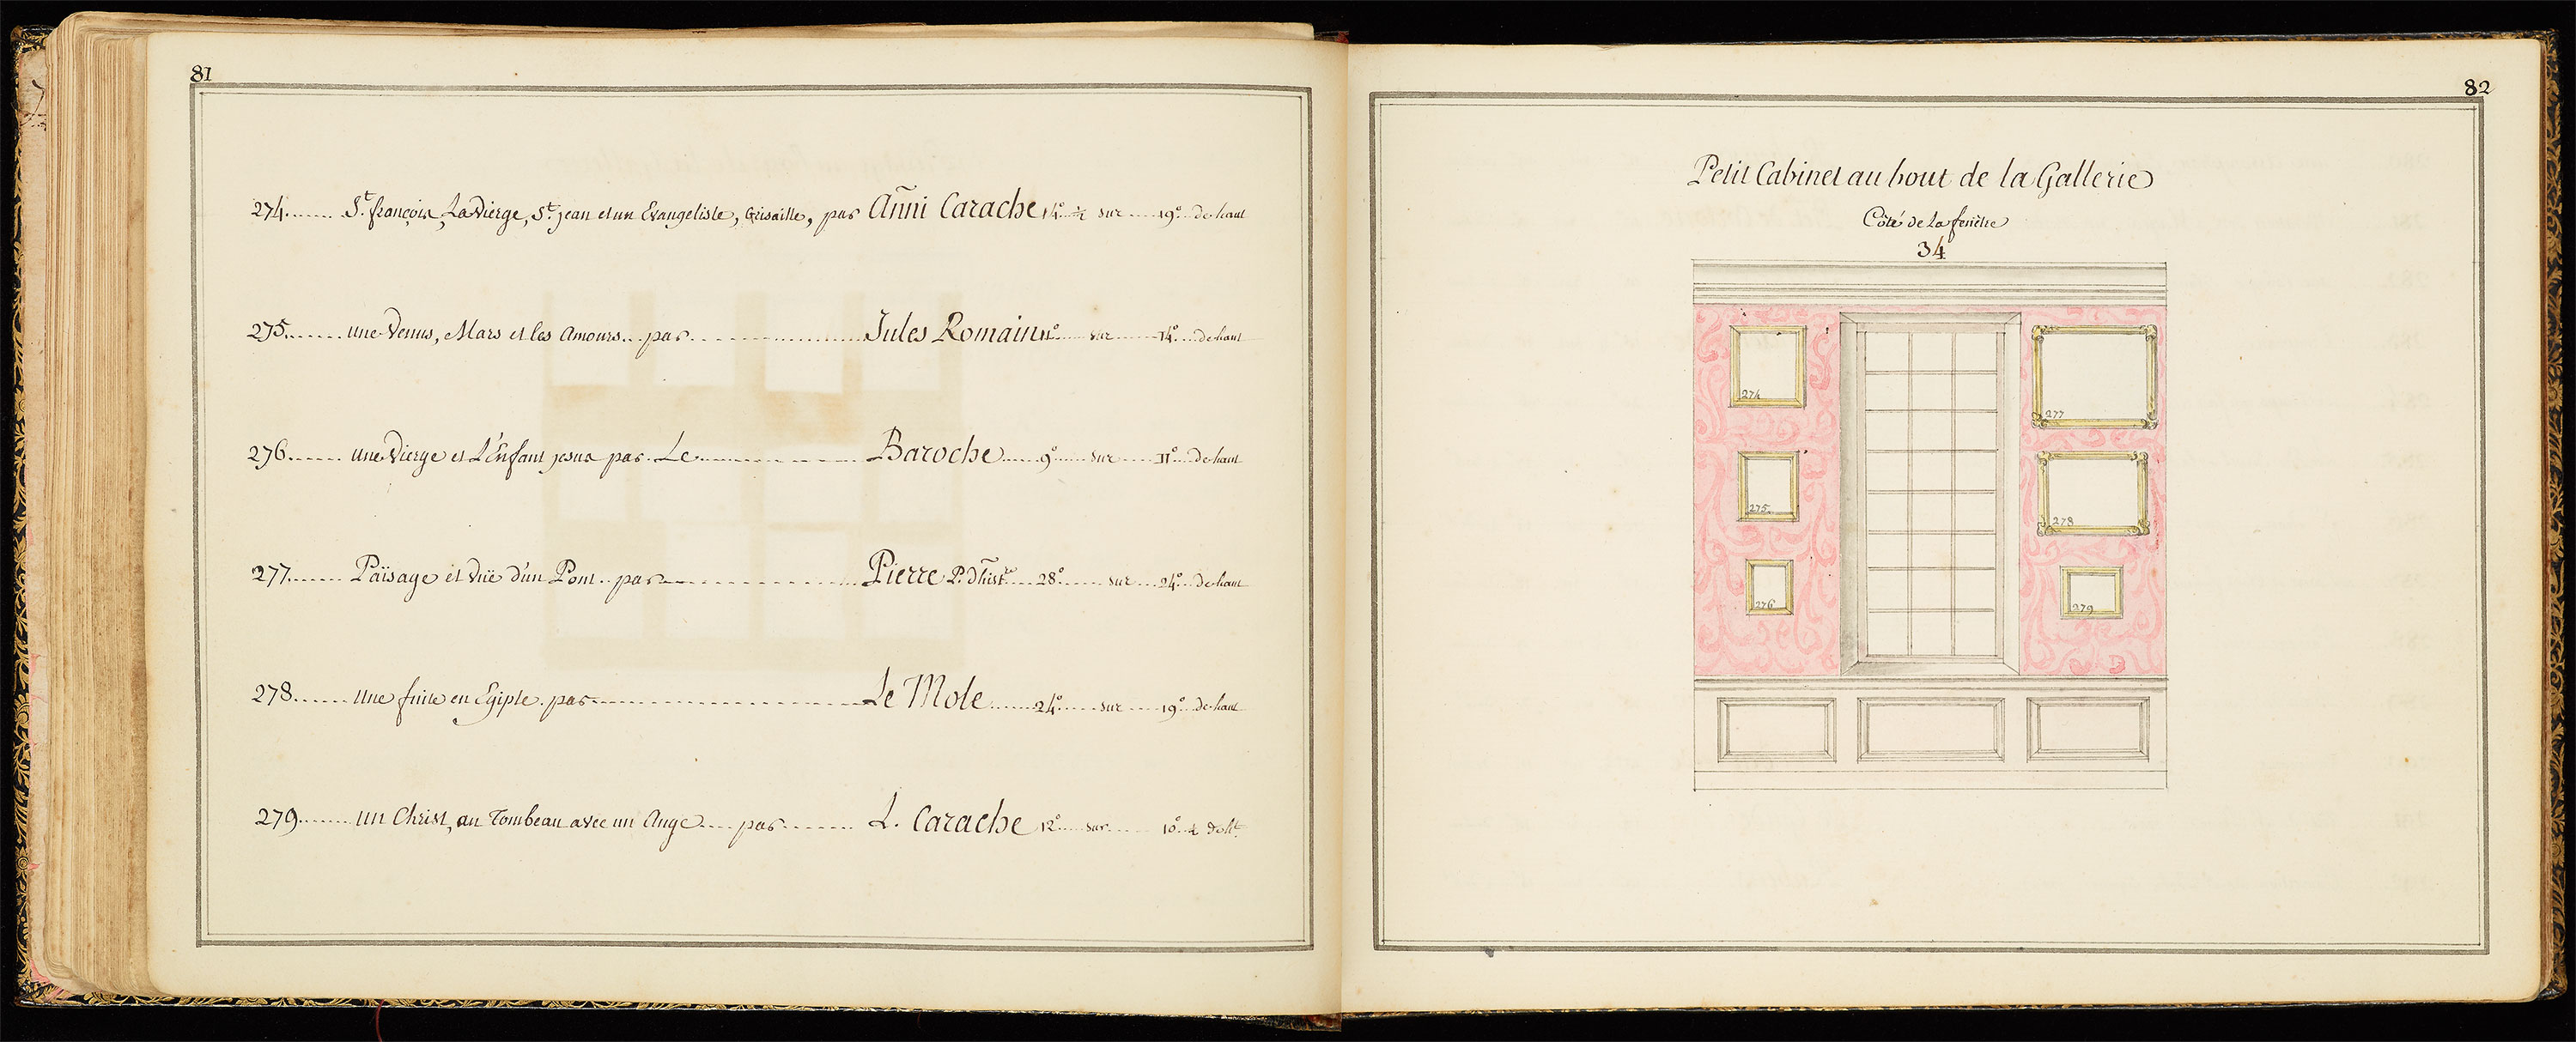 81
274....... St. françois, La Vierge, St. jean et un Evangeliste, Grisaille, par Añni Carache 14° ½ sur ..... 19° de haut
275....... une Venus, Mars et les Amours... par ................ Jules Romain 11° ..... sur ...... 14° ... de haut
276....... une Vierge et L'Enfant jesus par. Le ............... Baroche ..... 9° ..... sur ..... 11° ... de haut
277....... Païsage et Vüe d'un Pont.. par ................ Pierre P. d'hist.re 28° ...... sur .... 24° ... de haut
278....... une fuite en Egipte. par ................ Le Mole ...... 24° ..... sur .... 19° ... de haut
279....... un Christ, au Tombeau avec un Ange .... par ....... L. Carache 12° .... sur ..... 10° de ht.
82
Petit Cabinet au bout de la Gallerie
Côté de La fenêtre
34
274
277
275
278
276
279